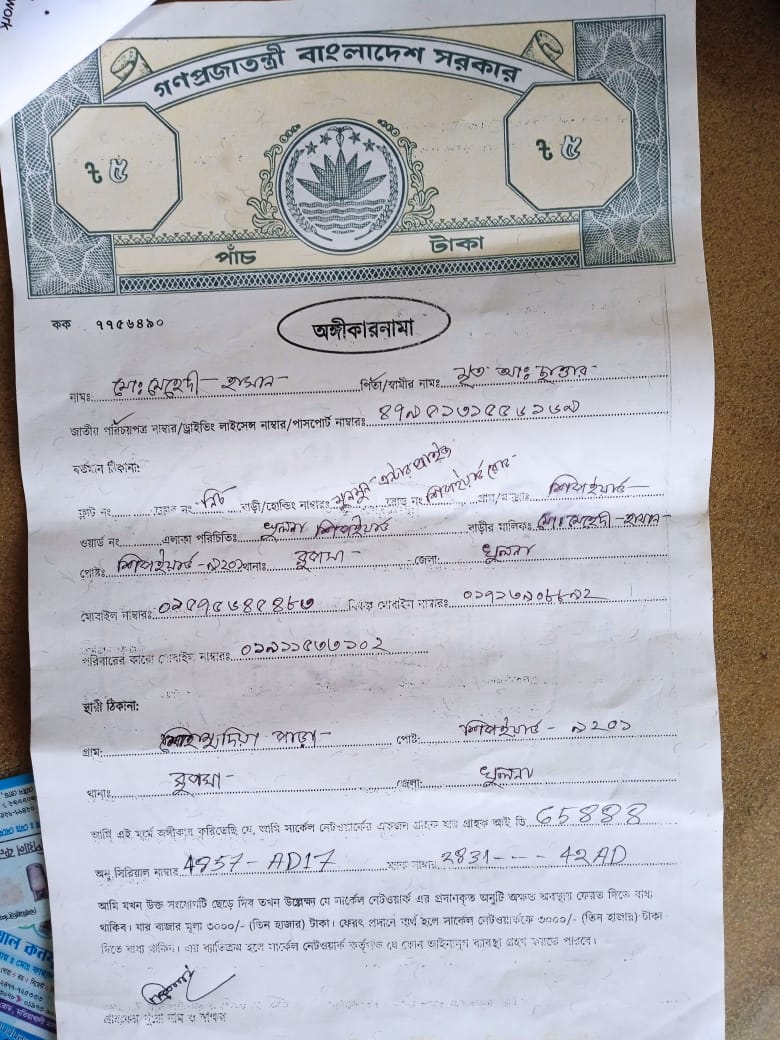 work
গণপ্রজাতন্ত্রী বাংলাদেশ সরকার
৳ ৫ ৳ ৫
পাঁচ টাকা
কক ৭৭৫৬৪৯০
অঙ্গীকারনামা
নামঃ মোঃ মেহেদী হাসান পিতা/স্বামীর নামঃ মৃত আঃ ছাত্তার
জাতীয় পরিচয়পত্র নাম্বার/ড্রাইভিং লাইসেন্স নাম্বার/পাসপোর্ট নাম্বারঃ
বর্তমান ঠিকানা:
ফ্লাট নং ফ্লোর নং নিচ বাড়ী/হোল্ডিং নাম্বারঃ রোড নং শিপইয়ার্ড রোড গ্রাম/মহল্লাঃ শিপইয়ার্ড
ওয়ার্ড নং এলাকা পরিচিতিঃ খুলনা শিপইয়ার্ড বাড়ীর মালিকঃ মোঃ মেহেদী হাসান
পোষ্টঃ শিপইয়ার্ড - ৯২০১ থানাঃ রূপসা জেলা: খুলনা
মোবাইল নাম্বারঃ বিকল্প মোবাইল নাম্বারঃ
পরিবারের কারো মোবাইল নাম্বারঃ ০১৯১১৫৩৩১০২
স্থায়ী ঠিকানা:
গ্রাম: পাড়া পোষ্ট: শিপইয়ার্ড - ৯২০১
থানাঃ রূপসা জেলা: খুলনা
আমি এই মর্মে অঙ্গীকার করিতেছি যে, আমি সার্কেল নেটওয়ার্কের একজন গ্রাহক যার গ্রাহক আই ডি 65888
অনু সিরিয়াল নাম্বার 4957-AD17 ম্যাক নাম্বার 2831--- 42AD
আমি যখন উক্ত সংযোগটি ছেড়ে দিব তখন উল্লেক্ষ্য যে সার্কেল নেটওয়ার্ক এর প্রদানকৃত অনুটি অক্ষত অবস্থায় ফেরত দিতে বাধ্য
থাকিব। যার বাজার মূল্য ৩০০০/- (তিন হাজার) টাকা। ফেরৎ প্রদানে ব্যর্থ হলে সার্কেল নেটওয়ার্ককে ৩০০০/- (তিন হাজার) টাকা
দিতে বাধ্য থাকিব। এর ব্যতিক্রম হলে সার্কেল নেটওয়ার্ক কর্তৃপক্ষ যে কোন আইনানুগ ব্যবস্থা গ্রহণ করতে পারবে।
নাম ও স্বাক্ষর